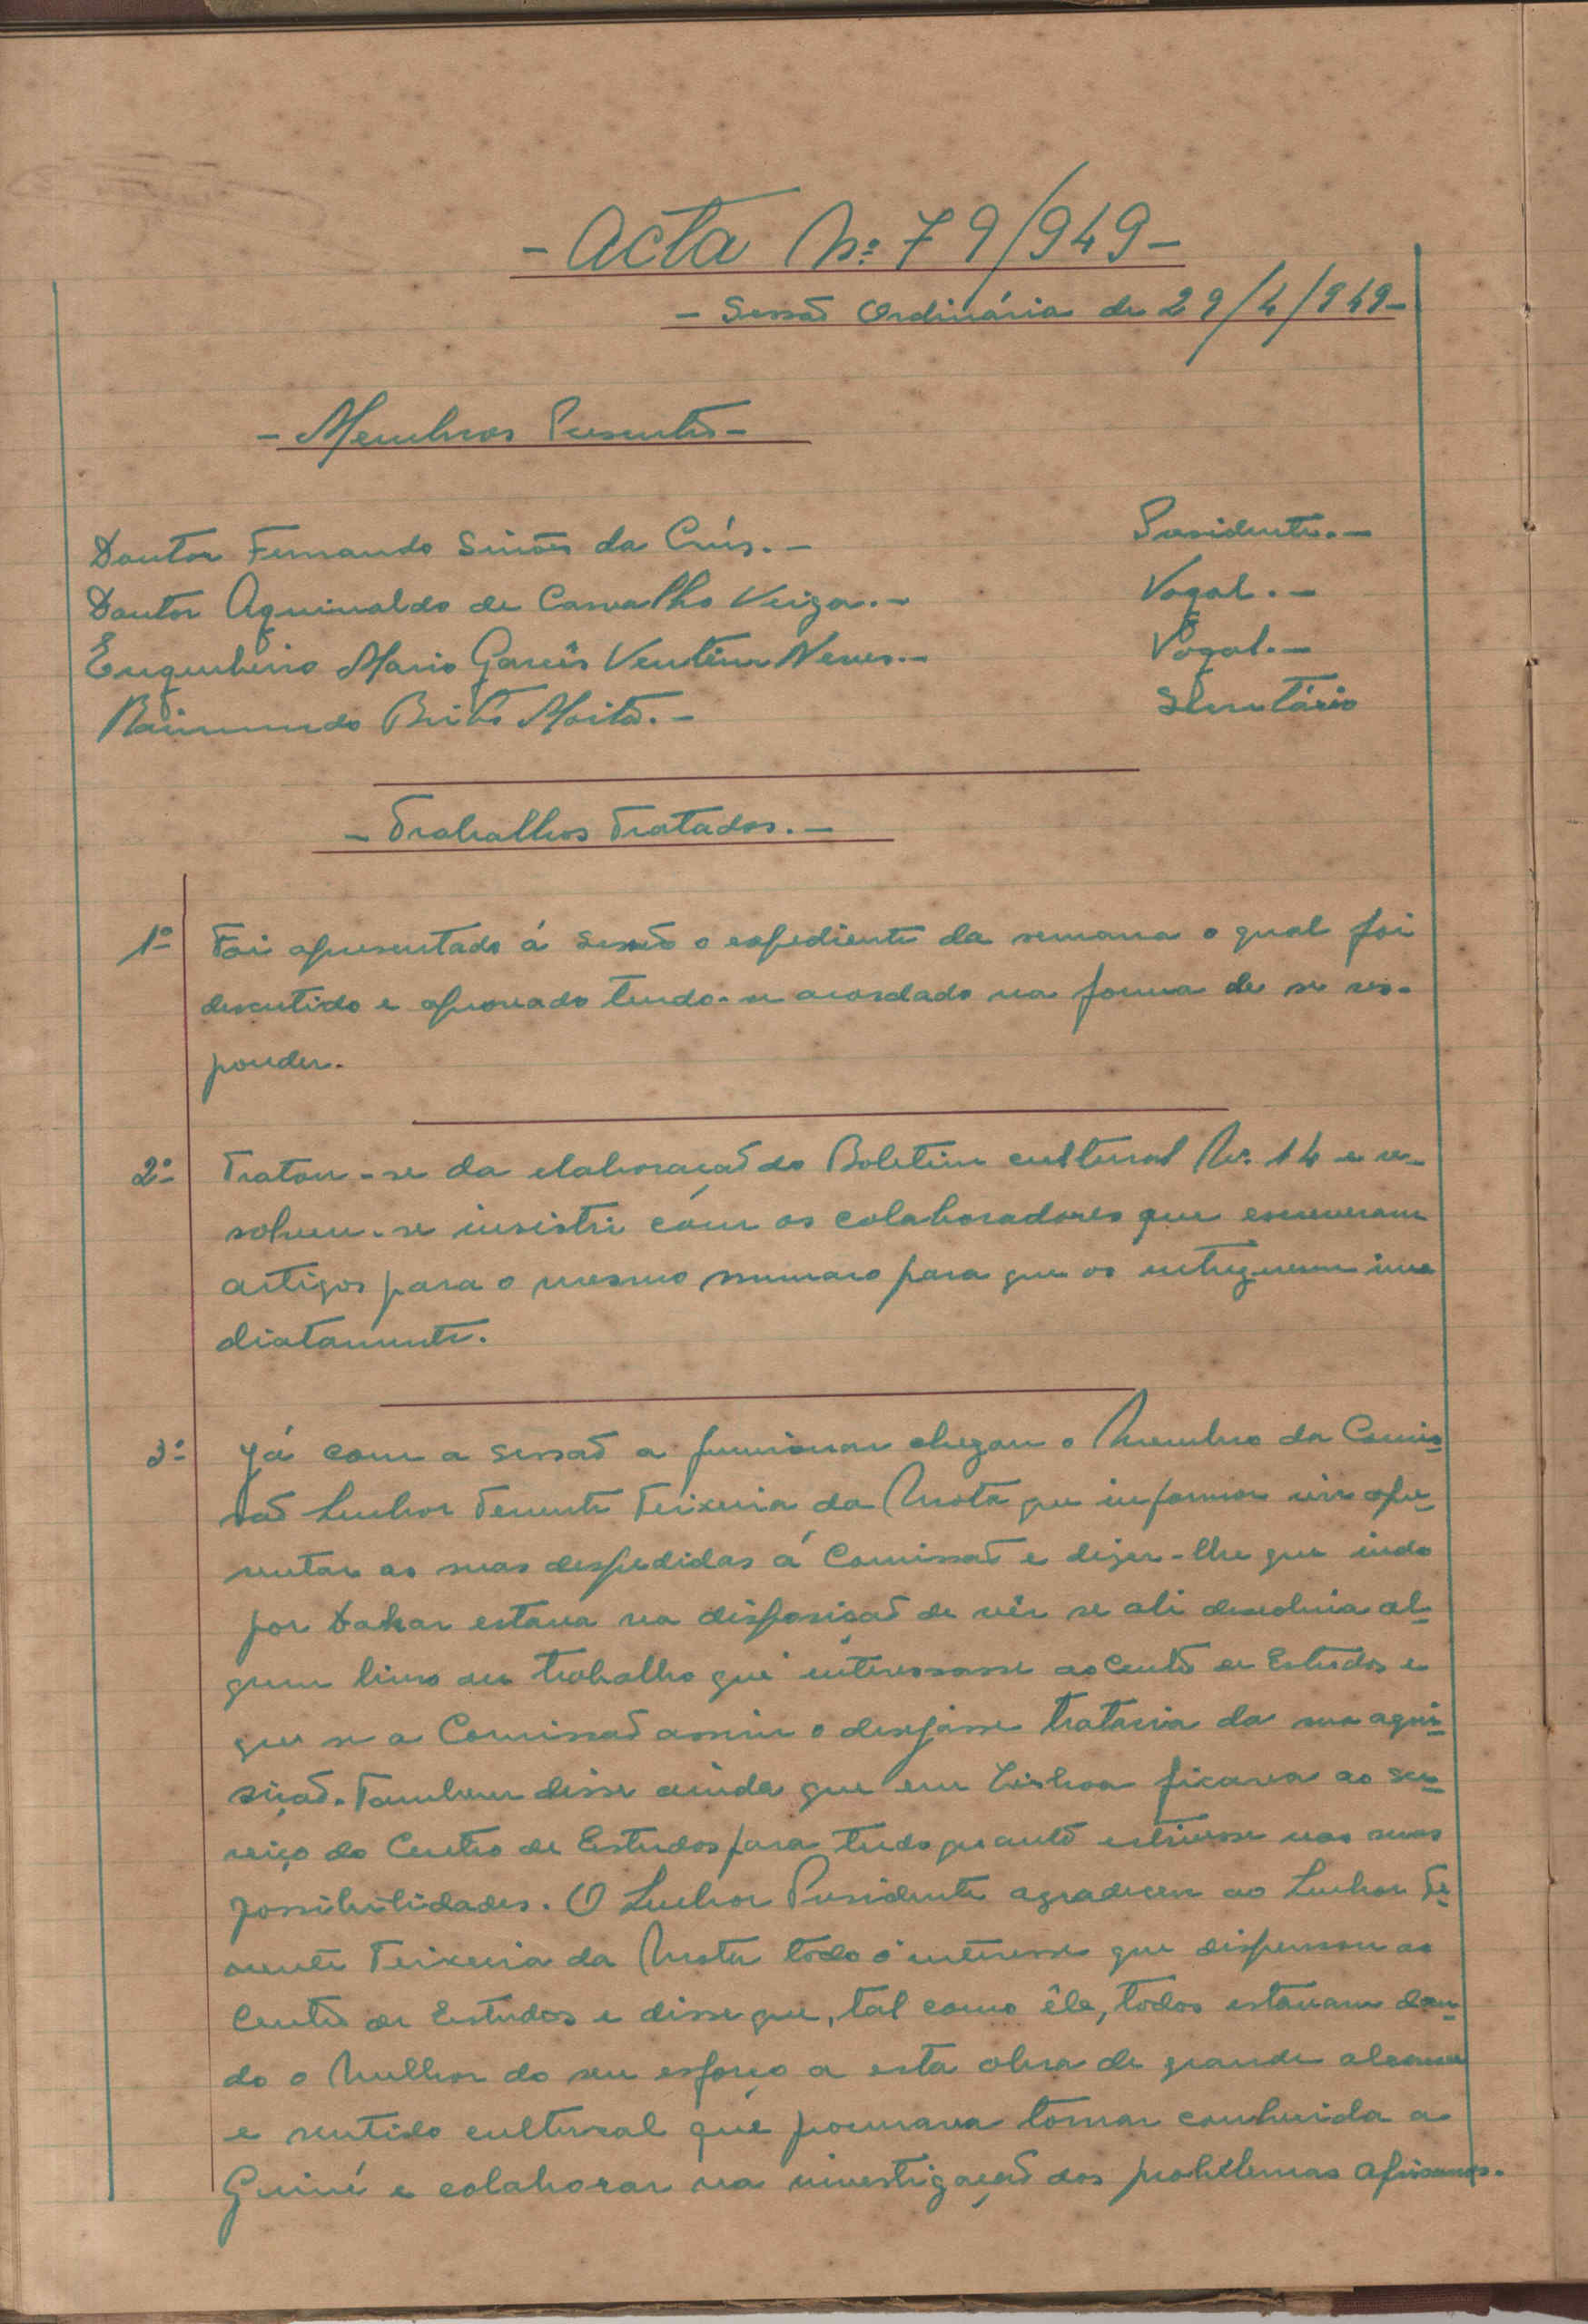 - Acta Nº 79/949 -
- Sessão Ordinária de 29/4/949 -
- Membros Presentes -
Doutor Fernando Simões da Crús. - Presidente. -
Doutor Aguinaldo de Carvalho Veiga. - Vogal. -
Engenheiro Mario Garcês Ventim Neves. - Vogal. -
Raimundo Brito Moita. - Secretário
- Trabalhos Tratados. -
1º Foi apresentado á sessão o expediente da semana o qual foi
descutido e aprovado tendo-se acordado na forma de se res-
ponder.
2º Tratou-se da elaboração do Boletim cultural Nº 14 e re-
solveu-se insistir com os colaboradores que escreveram
artigos para o mesmo numaro para que os entreguem ime
diatamente.
3º Já com a sessão a funcionar chegou o Membro da Comis-
são Senhor Tenente Teixeira da Mota que informou vir apre-
sentar as suas despedidas á Comissão e dizer-lhe que indo
por Dakar estava na disposição de vêr se ali descobria al-
gum livro ou trabalho que interessasse ao Centro de Estudos e
que se a Comissão assim o desejasse trataria da sua aqui-
sição. Tambem disse ainda que em Lisboa ficava ao ser-
viço do Centro de Estudos para tudo quanto estivesse nas suas
possibilidades. O Senhor Presidente agradeceu ao Senhor Te-
nente Teixeira da Mota todo o interesse que dispensou ao
Centro de Estudos e disse que, tal como êle, todos estavam dan-
do o melhor do seu esforço a esta obra de grande alcance
e sentido cultural que procurava tornar conhecida a
Guiné e colaborar na investigação dos problemas africanos.